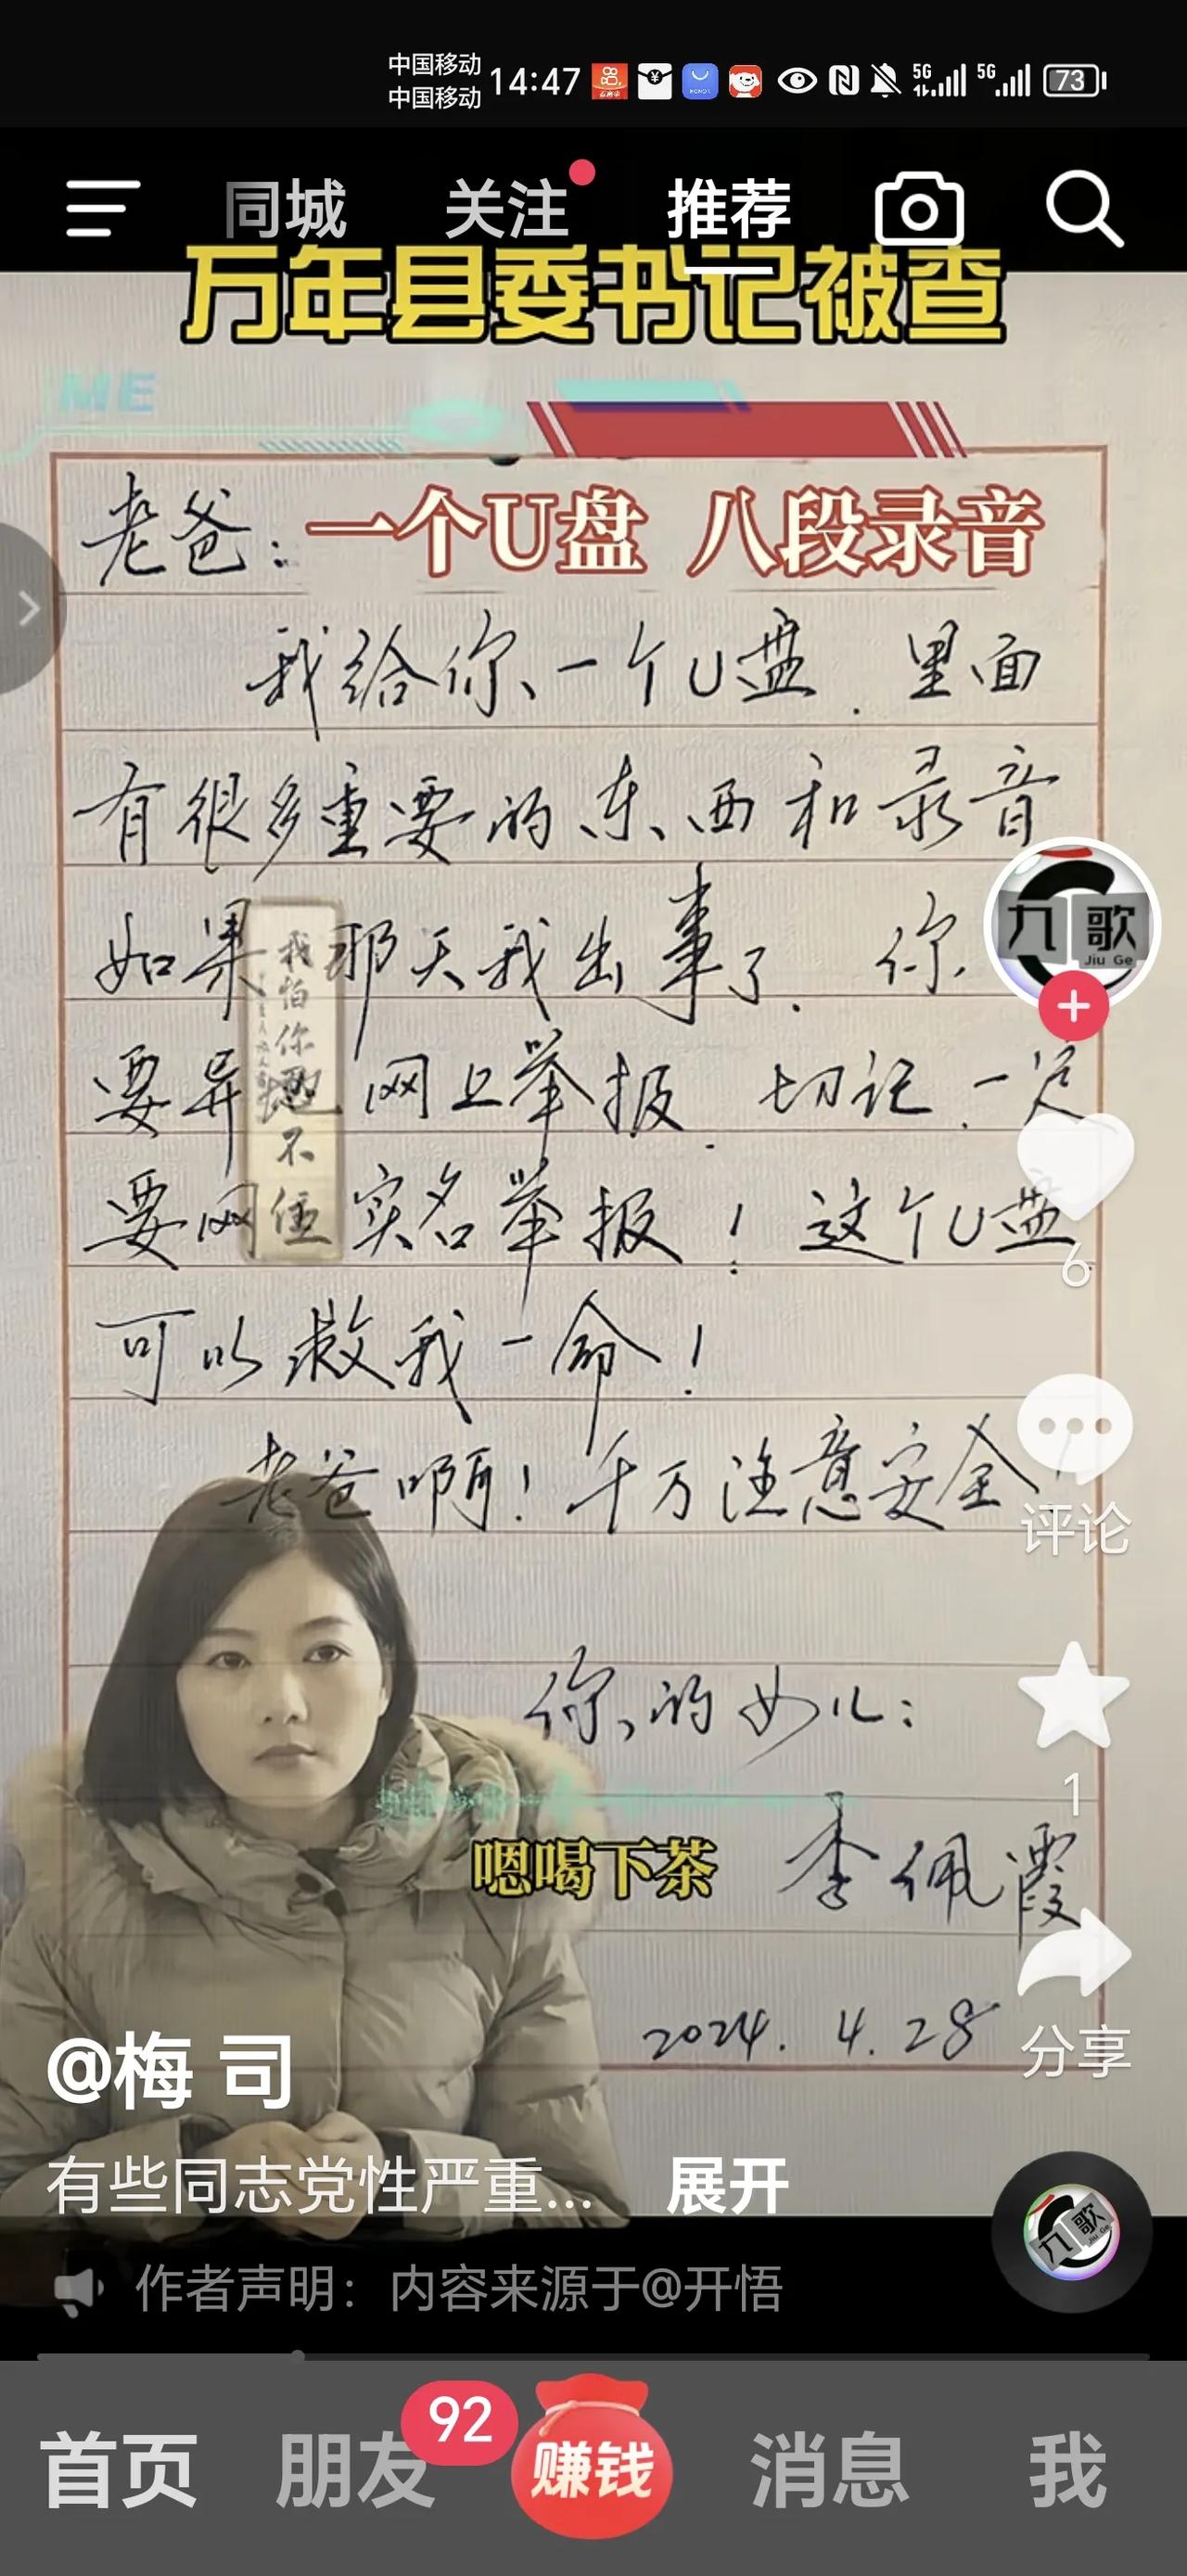 中国移动
中国移动
14:47
5G
5G
73
同城 关注 推荐
万年县委书记被查
ME
老爸:一个U盘 八段录音
我给你一个U盘.里面
有很多重要的东西和录音
如果那天我出事了.你
要异地网上举报.切记.一定
要网 实名举报!这个U盘
可以救我一命!
老爸啊!千万注意安全
我怕你
不
你的女儿:
李佩霞
嗯喝下茶
2024.4.28
九歌
Jiu Ge
6
评论
1
分享
@梅 司
有些同志党性严重... 展开
作者声明:内容来源于@开悟
九歌
首页 朋友 92 赚钱 消息 我